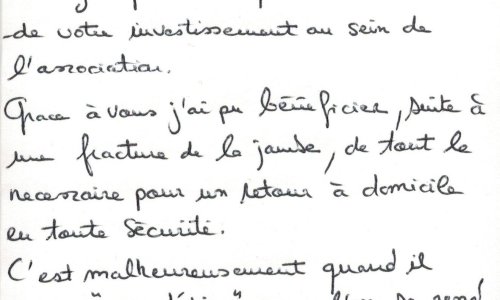 de votre investissement au sein de
l'association.
Grace à vous j'ai pu bénéficier, suite à
une fracture de la jambe, de tout le
necessaire pour un retour à domicile
en toute sécurité.
C'est malheureusement quand il